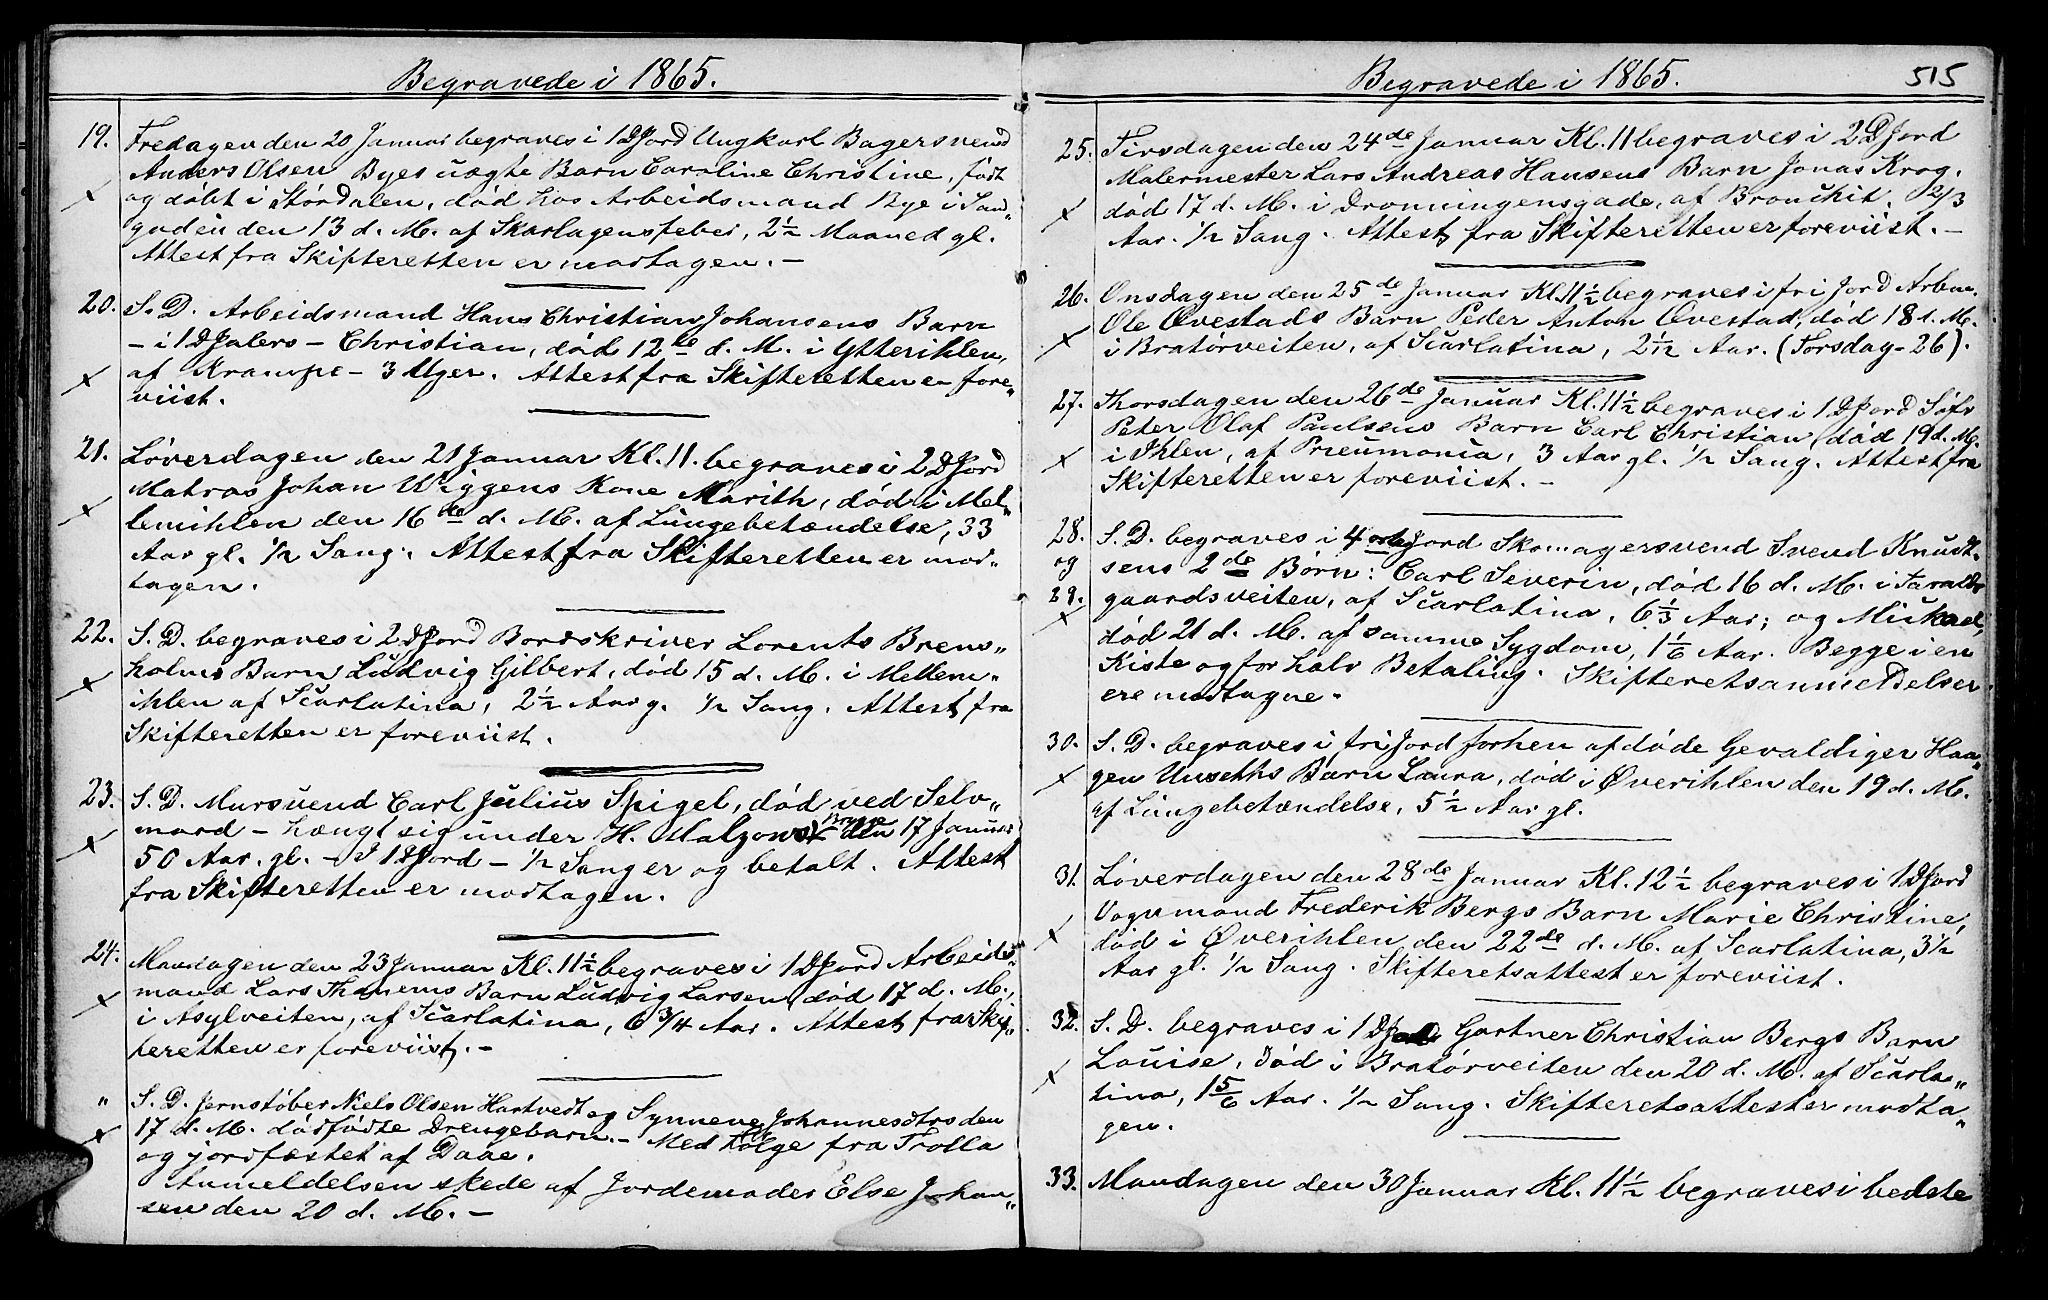 Begravede i 1865.
19. Fredagen den 20 Januar begraves i 1 D Jord Ungkarl Bagersvend
Anders Olsen Byes uægte Barn Caroline Christine, født
og døbt i Stórdalen, død hos Arbeidsmand Bye i San„
gaden den 13 d. M. af Skarlagensfeber, 2 1/2 Maaned gl.
Attest fra Skifteretten er modtagen. –
20. S. D. Arbeidsmand Hans Christian Johansens Barn
– i 1 D Jalers – Christian, død 12te d. M. i Ytterihlen,
af Krampe – 3 Uger. Attest fra Skifteretten er fore„
viist.
21. Løverdagen den 21 Januar Kl. 11. begraves i 2 D Jord
Matros Johan Wiggens Kone Marith, død i Mel„
lemihlen den 16de d. M. af Lungebetændelse, 33
Aar gl. 1/2 Sang. Attest fra Skifteretten er mod„
tagen.
22. S. D. begraves i 2 D Jord Bordskriver Lorents Brems„
holms Barn Ludvig Gilbert, død 15 d. M. i Mellem„
ihlen af Scarlatina, 2 1/2 Aar g. 1/2 Sang. Attest fra
Skifteretten er foreviist.
23. S. D. Mursvend Carl Julius Spigel, død ved Selv„
mord – hængt sig under H. Malzows Brygge den 17 Januar
50 Aar. gl. – I 1 D Jord – 1/2 Sang er og betalt. Attest
fra Skifteretten er modtagen.
24. Mandagen den 23 Januar Kl. 11 1/2 begraves i 1 D Jord Arbeids„
mand Lars Thanems Barn Ludvig Larsen, død 17 d. M.,
i Asylveiten, af Scarlatina, 6 3/4 Aar. Attest fra Skif„
teretten er foreviist. –
„ S. D. Jernstøber Niels Olsen Hartvedt og Synneve Johannesdtrs den
17 d. M. dødfødte Drengebarn. – Med Følge fra Trolla
og jordfæstet af Daae.
Anmeldelsen skede af Jordemoder Else Johan„
sen den 20 d. M. –
Begravede i 1865. 515
25. Tirsdagen den 24de Januar Kl. 11 begraves i 2 D Jord
Malermester Lars Andreas Hansens Barn Jonas Krog,
død 17 d. M. i Dronningensgade, af Bronchit. 2/3
Aar. 1/2 Sang. Attest fra Skifteretten er foreviist. –
26. Onsdagen den 25de Januar Kl. 11 1/2 begraves i fri Jord Arbm.
Ole Øvestads Barn Peder Anton Øvestad, død 18 d. M.
i Bratørveiten, af Scarlatina, 2 1/2 Aar. (Torsdag – 26).
27. Thorsdagen den 26de Januar Kl. 11 1/2 begraves i 1 D Jord Søfr
Peter Olaf Paulsens Barn Carl Christian, død 19 d. M.
i Ihlen, af Pneumonia, 3 Aar gl. 1/2 Sang. Attest fra
Skifteretten er foreviist. –
28. S. D. begraves i 4 orts Jord Skomagersvend Svend Knudt„
og sens 2de Børn: Carl Severin, død 16 d. M. i Taralds
29. gaardsveiten, af Scarlatina, 6 1/3 Aar; og Mikael,
død 21 d. M. af samme Sygdom, 1 1/6 Aar. Begge i en
Kiste og for halv Betaling. Skifteretsanmeldelser
ere modtagne.
30. S. D. begraves i fri Jord forhen afdøde Gevaldiger Haa„
gen Unseths Barn Laura, død i Øverihlen den 19 d. M.
af Lungebetændelse, 5 1/2 Aar gl.
31. Løverdagen den 28de Januar Kl. 12 1/2 begraves i 1 D Jord
Vognmand Frederik Bergs Barn Marie Christine,
død i Øverihlen den 22de d. M. af Scarlatina, 3 1/2
Aar gl. 1/2 Sang. Skifteretsattest er foreviist.
32. S. D. begraves i 1 D Jord Gartner Christian Bergs Barn
Louise, død i Bratørveiten den 20 d. M. af Scarla„
tina, 1 5/6 Aar. 1/2 Sang. Skifteretsattest er modta„
gen.
33. Mandagen den 30 Januar Kl. 11 1/2 begraves i bedste